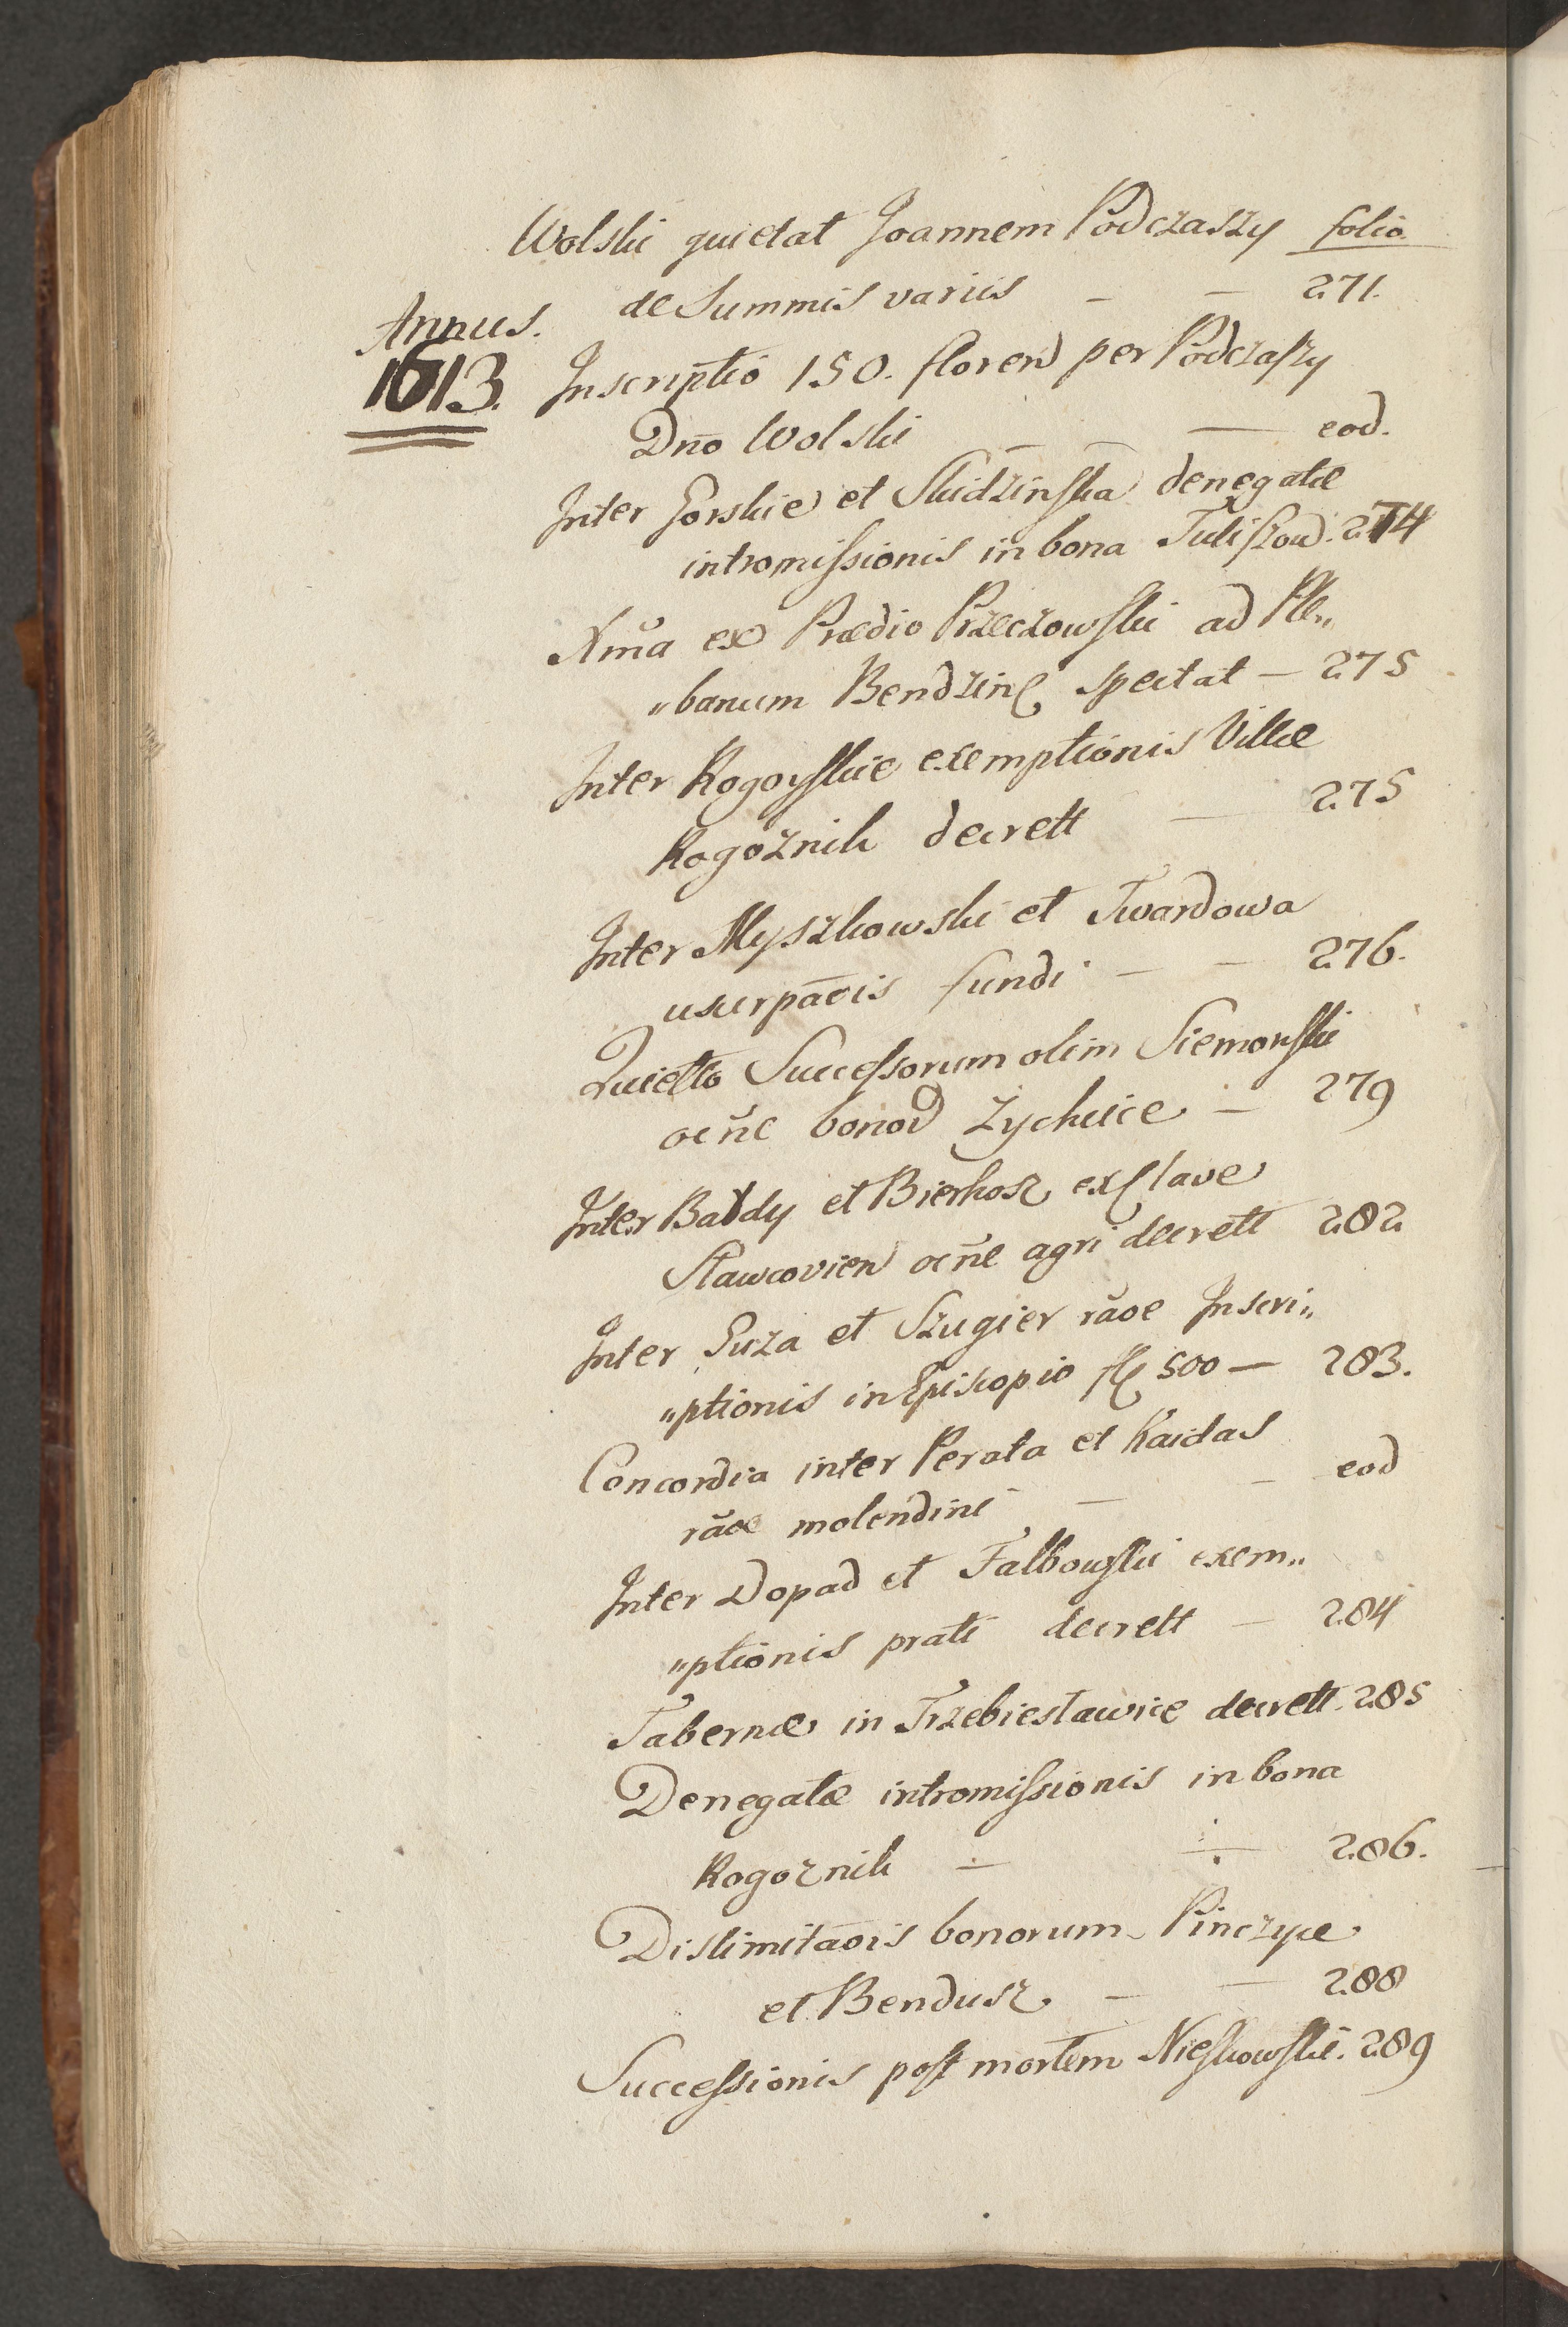 Wolski quietat Joannem Podczaszy folio.
de Summis variis — — 271.
Annus.
1613.
Inscriptio 150. floren per Podczaszy
Dno Wolski — — eod.
Inter Gorskie et Skidzinska denegatæ
intromissionis in bona Tuliszow. 274
Xma ex Prædio Przeczowski ad Ple„
„banum Bendzin spectat — 275
Inter Rogoyskie exemptionis Villæ
Rogoznik decrett — 275
Inter Myszkowski et Twardowa
usurpaois fundi — — 276.
Quiettõ Successorum olim Siemonski
ocñe bonor Zychcice — 279
Inter Bałdy et Bierkosz ex
Slawcovien ocñe agri decrett 282
Inter Guza et Szugier rãoe Inscri„
„ptionis in Episcopio fl 500 — 283.
Concordia inter Perata et Kaidas
rãoe molendini — — eod
Inter Dopad et Falbowski exem„
„ptionis prati decrett — 284
Tabernæ in Trzebiesławice decrett. 285
Denegatæ intromissionis in bona
Rogoznik — — 286.
Dislimitaõis bonorum Pinczyce
et Bendusz — — 288
Successionis post mortem Nieskowski. 289